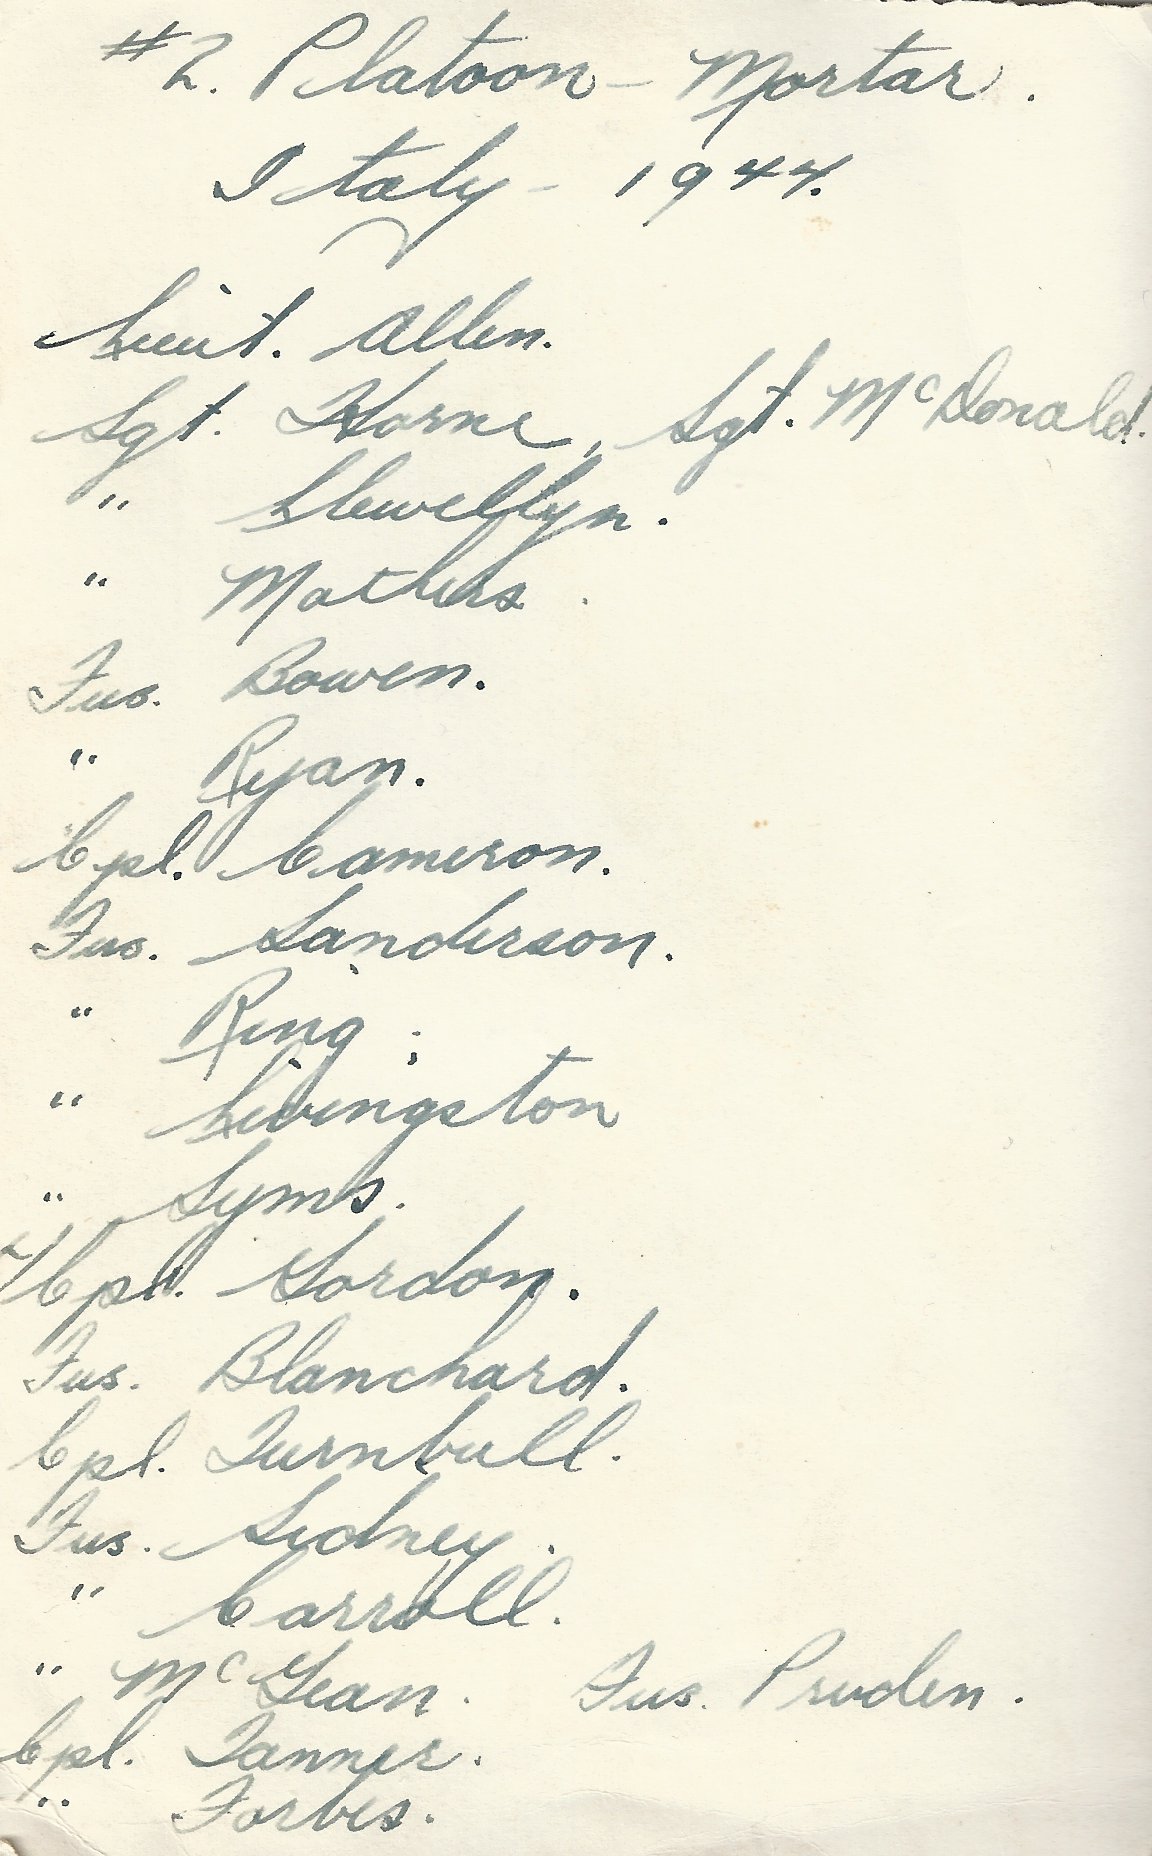 #2. Platoon - Mortar.
Italy - 1944.
Lieut. Allen.
Sgt. Horne, Sgt. McDonald.
" Llewellyn.
" Mathers.
Fus. Bowen.
" Ryan.
Cpl. Cameron.
Fus. Sanderson.
" Ring.
" Livingston
" Syms.
L/Cpl. Gordon.
Fus. Blanchard.
Cpl. Turnbull.
Fus. Sidney.
" Carroll.
" McGean. Fus. Pruden.
Cpl. Tanner.
" Forbes.